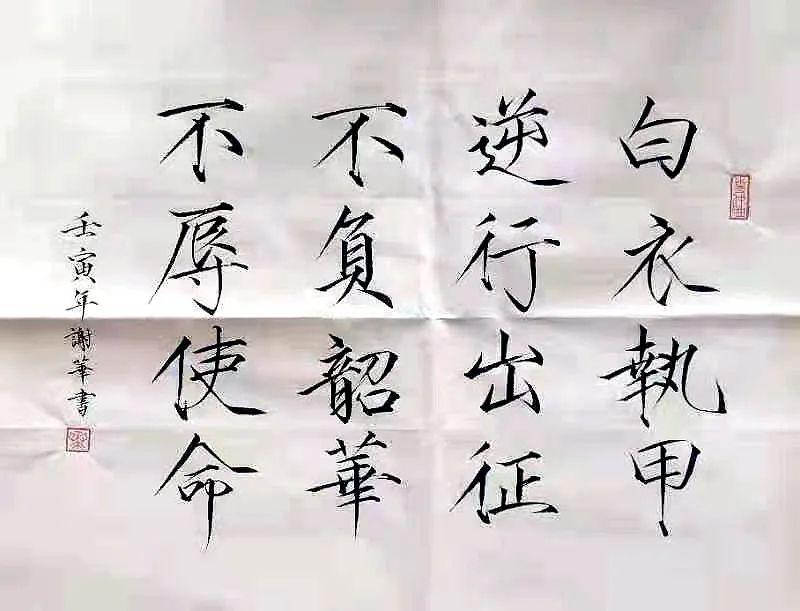 白衣執甲
逆行出征
不負韶華
不辱使命
壬寅年謝華書